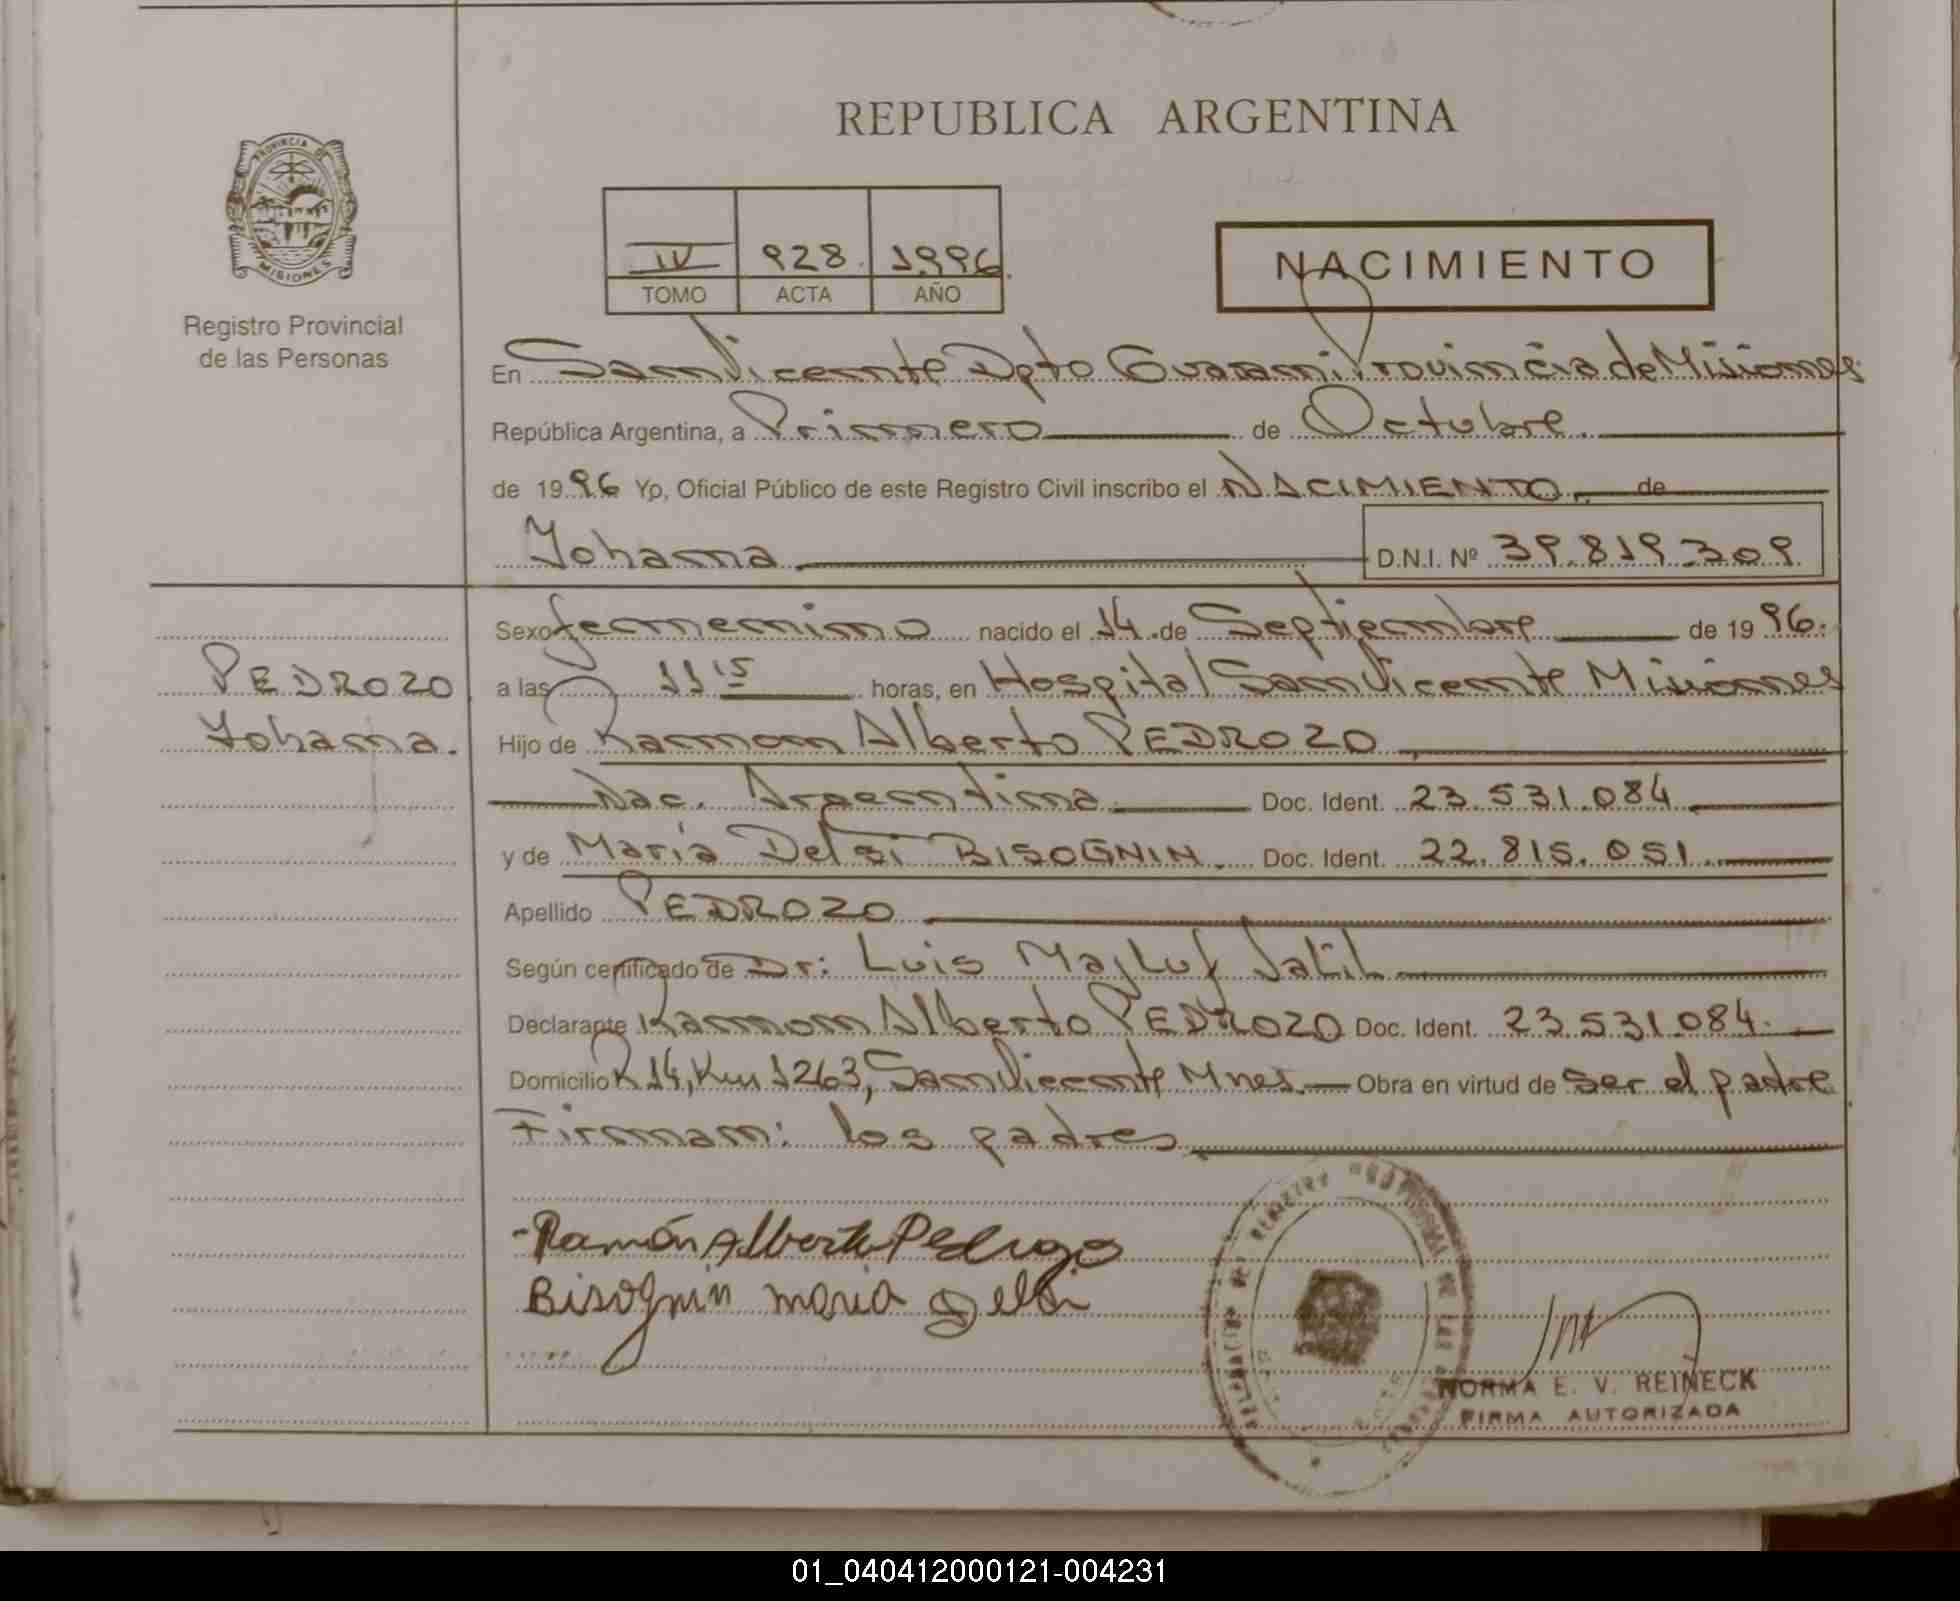 REPUBLICA ARGENTINA
PROVINCIA DE
MISIONES
Registro Provincial
de las Personas
IV 928 1996
TOMO ACTA AÑO
NACIMIENTO
En San Vicente Dpto Guarani Provincia de Misiones
República Argentina, a Primero de Octubre
de 1996 Yo, Oficial Público de este Registro Civil inscribo el NACIMIENTO de
Yohana D.N.I. Nº 39.819.309
Sexo femenino nacido el 14 de Septiembre de 1996.
PEDROZO
Yohana.
a las 11 15 horas, en Hospital San Vicente Misiones
Hijo de Ramon Alberto PEDROZO
Nac. Argentina Doc. Ident. 23.531.084
y de María Delsi BISOGNIN. Doc. Ident. 22.815.051
Apellido PEDROZO
Según certificado de Dr: Luis Majluf
Declarante Ramon Alberto PEDROZO Doc. Ident. 23.531.084.
Domicilio R 14, Km 1263, San Vicente Mnes. Obra en virtud de ser el padre
Firman: los padres
Ramón Alberto Pedrozo
Bisognin maria Delsi
NORMA E. V. REINECK
FIRMA AUTORIZADA
01_040412000121-004231